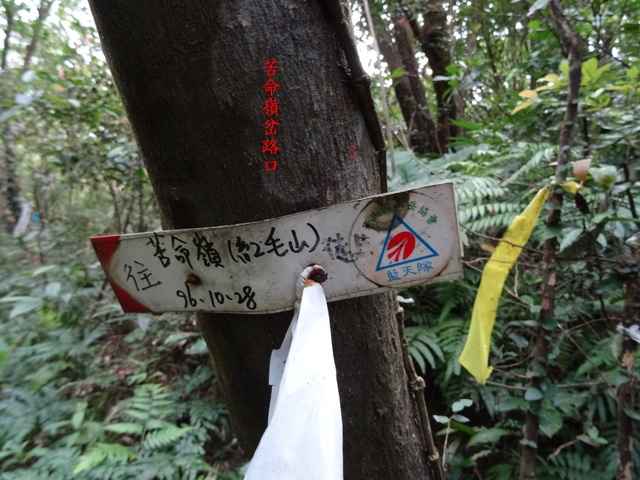 苦命嶺岔路口
往 苦命嶺(紅毛山)
96.10.28
藍天隊